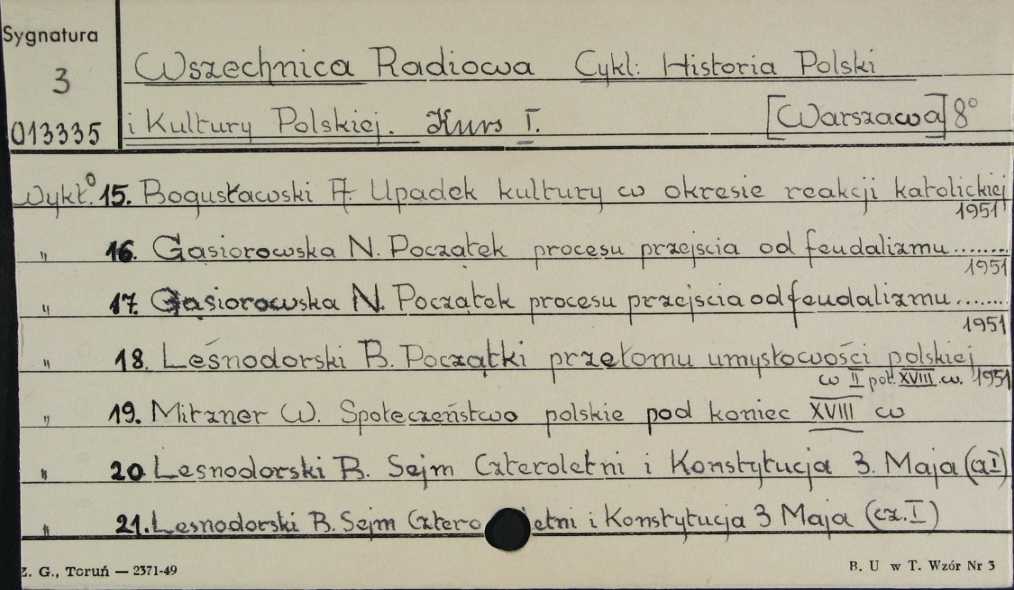 Sygnatura
3
013335
Wszechnica Radiowa Cykl: Historia Polski
i Kultury Polskiej. Kurs I. [Warszawa] 8°
Wykł. 15. Bogusławski A. Upadek kultury w okresie reakcji katolickiej
1951
" 16. Gąsiorowska N. Początek procesu przejscia od feudalizmu........
1951
" 17. Gąsiorowska N. Początek procesu przejscia od feudalizmu.......
1951
" 18. Leśnodorski B. Początki przełomu umysłowości polskiej
w II poł. XVIII w. 1951
" 19. Mitzner W. Społeczeństwo polskie pod koniec XVIII w
" 20 Lesnodorski B. Sejm Czteroletni i Konstytucja 3. Maja (cz I)
" 21. Lesnodorski B. Sejm Cztero letni i Konstytucja 3 Maja (cz. I)
Z. G., Toruń — 2371-49
B. U w T. Wzór Nr 3